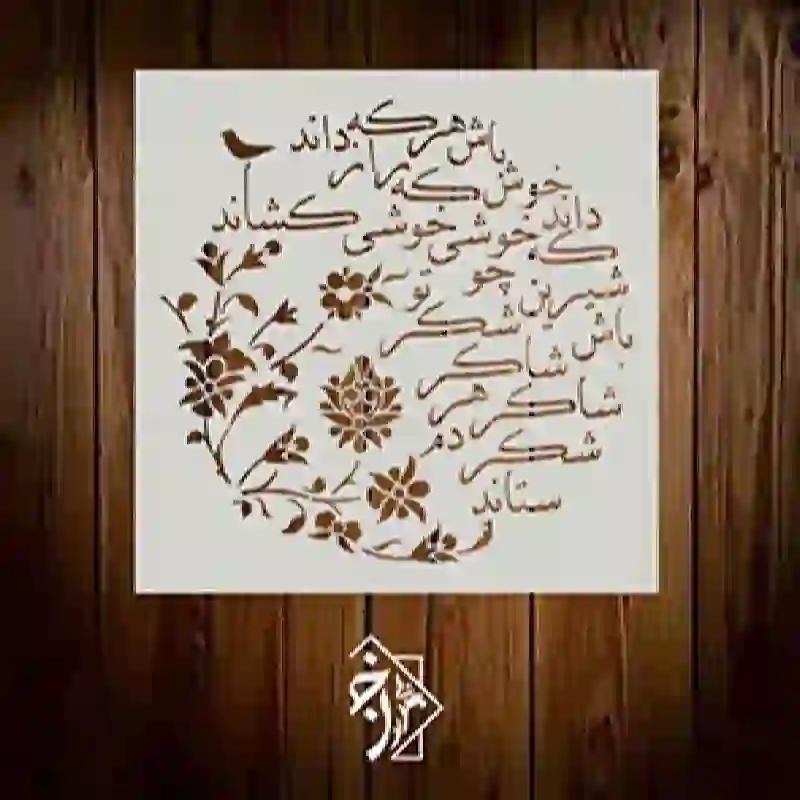 باش هر که داند
خوش که راز
داند خوشی خوشی کشاند
که
شیرین چو تو
باش شکر
شاکر
شاکر هر
شکر دم
ستاند